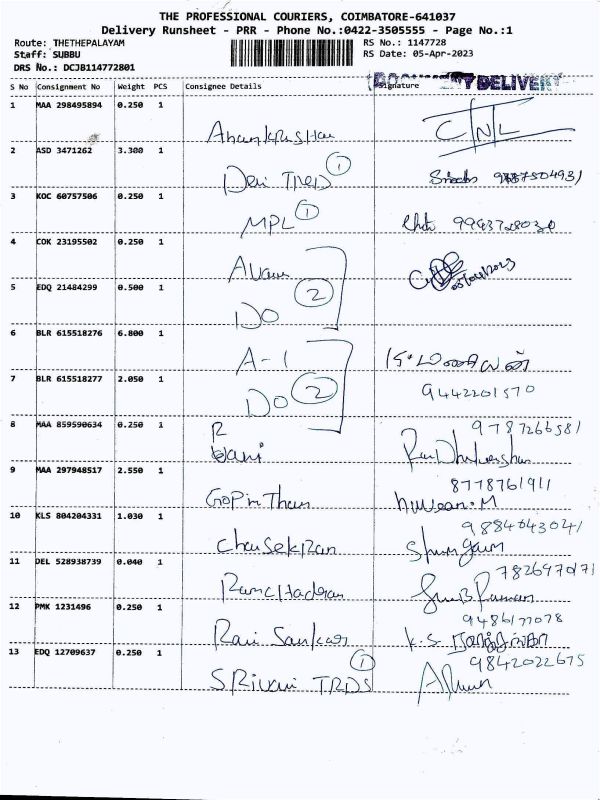 THE PROFESSIONAL COURIERS, COIMBATORE-641037
Delivery Runsheet - PRR - Phone No.:0422-3505555 - Page No.:1
Route: THETHEPALAYAM RS No.: 1147728
Staff: SUBBU RS Date: 05-Apr-2023
DRS No.: DCJB114772801
DELIVERY
S No Consignment No Weight PCS Consignee Details Signature
1 MAA 298495894 0.250 1
CNL
2 ASD 3471262 3.300 1
Devi TRED 1
3 KOC 60757506 0.250 1
MPL 1
4 COK 23195502 0.250 1
5 EDQ 21484299 0.500 1
DO 2
6 BLR 615518276 6.800 1
A-1
7 BLR 615518277 2.050 1 9442201570
DO 2
8 MAA 859590634 0.250 1 9787266581
R
Vani
9 MAA 297948517 2.550 1 8778761911
Gopinthan
10 KLS 804204331 1.030 1 9884043041
11 DEL 528938739 0.040 1 7826970171
12 PMK 1231496 0.250 1 9486177078
Ravi Sankar K.S
13 EDQ 12709637 0.250 1 9842022675
SRivani TRDS 1